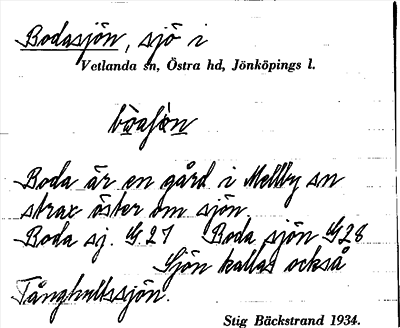 Bodasjön, sjö i
Vetlanda sn, Östra hd, Jönköpings l.
Boda är en gård i Mellby sn
strax öster om sjön.
Boda sj. G.27 Boda sjön G28
Sjön kallas också
Tånghultssjön.
Stig Bäckstrand 1934.